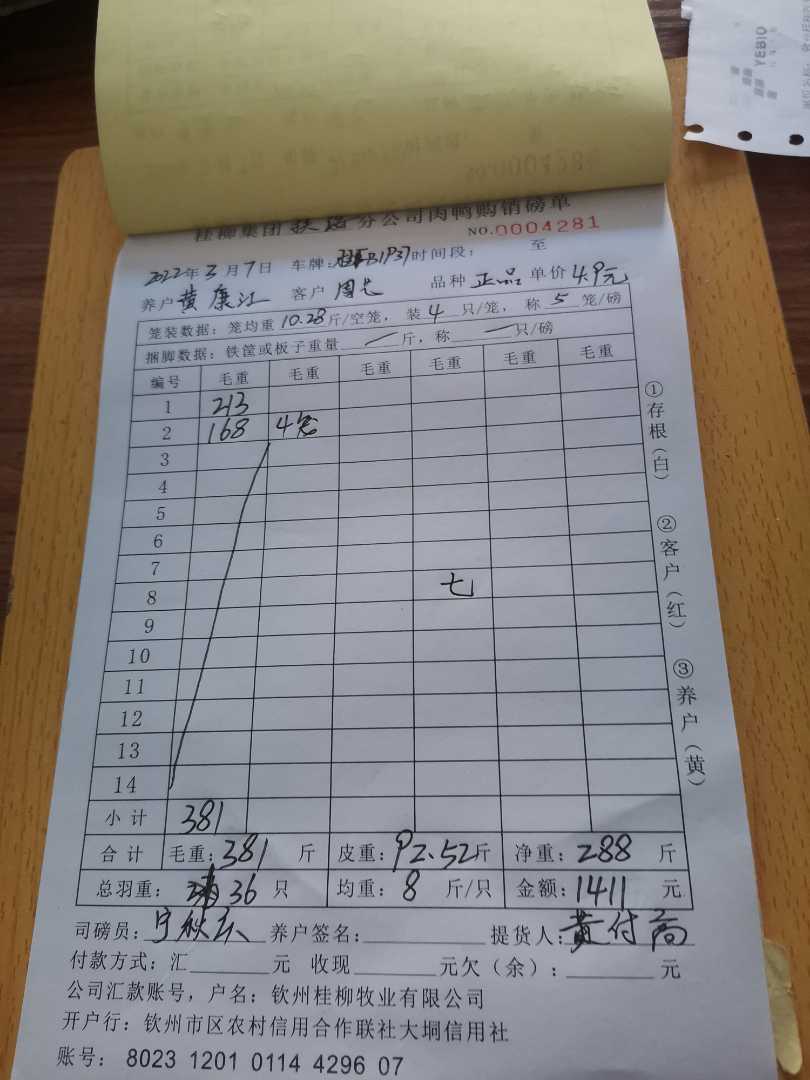 YEBIO
桂柳集团 分公司肉鸭购销磅单
NO.0004281
2022年3月7日 车牌: 时间段: 至
养户 黄康江 客户 周七 品种 正品 单价 4.9元
笼装数据: 笼均重 10.28 斤/空笼, 装 4 只/笼, 称 5 笼/磅
捆脚数据: 铁筐或板子重量 斤, 称 只/磅
编号 毛重 毛重 毛重 毛重 毛重 毛重
1 213
2 168 4笼
3
4
5
6
7
8 七
9
10
11
12
13
14
小计 381
合计 毛重: 381 斤 皮重: 92.52斤 净重: 288 斤
总羽重: 36 只 均重: 8 斤/只 金额: 1411 元
司磅员: 宁秋 养户签名: 提货人: 黄付高
付款方式: 汇 元 收现 元欠(余): 元
公司汇款账号, 户名: 钦州桂柳牧业有限公司
开户行: 钦州市区农村信用合作联社大垌信用社
账号: 8023 1201 0114 4296 07
①存根(白)
②客户(红)
③养户(黄)